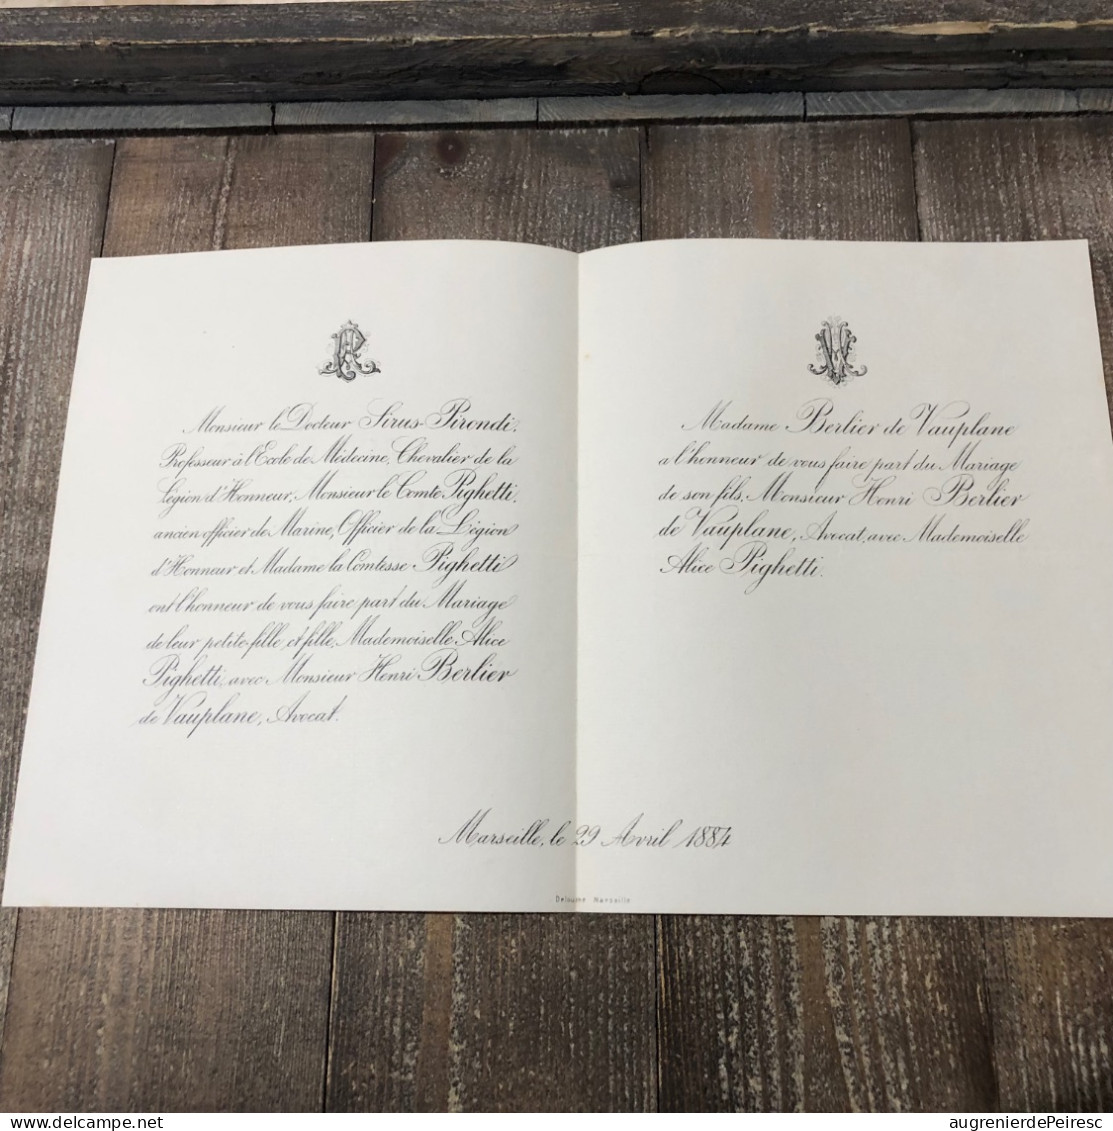 Monsieur le Docteur Sirus-Pirondi,
Professeur à l'Ecole de Médecine, Chevalier de la
Légion d'Honneur, Monsieur le Comte Pighetti,
ancien officier de Marine, Officier de la Légion
d'Honneur et Madame la Comtesse Pighetti
ont l'honneur de vous faire part du Mariage
de leur petite-fille, et fille, Mademoiselle Alice
Pighetti, avec Monsieur Henri Berlier
de Vauplane, Avocat.
Madame Berlier de Vauplane
a l'honneur de vous faire part du Mariage
de son fils, Monsieur Henri Berlier
de Vauplane, Avocat, avec Mademoiselle
Alice Pighetti.
Marseille, le 29 Avril 1884
Deloume Marseille
augrenierdePeiresc